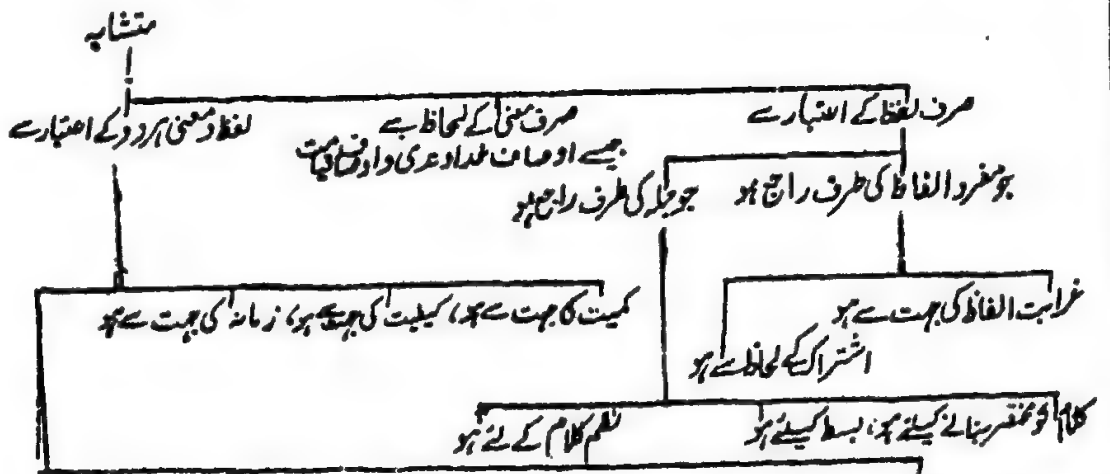 متشابہ
صرف لفظ کے اعتبار سے
صرف معنی کے لحاظ سے
جیسے اوصاف خداوندی و اوصاف قیامت
لفظ و معنی ہر دو کے اعتبار سے
جو مفرد الفاظ کی طرف راجع ہو
جو جملہ کی طرف راجع ہو
غرابت الفاظ کی جہت سے ہو
اشتراک کے لحاظ سے ہو
کمیت کا جہت سے ہو، کیفیت کی جہت سے ہو، زمانہ کی جہت سے ہو
کلام کو مختصر بنانے کیلئے ہو، بسط کیلئے ہو
نظم کلام کے لئے ہو